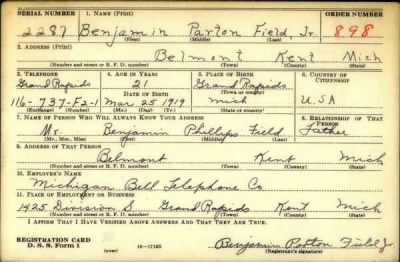 SERIAL NUMBER 1. NAME (Print) ORDER NUMBER
2287 Benjamin Parton Field, Jr. 898
(First) (Middle) (Last)
2. ADDRESS (Print)
Belmont Kent Mich
(Number and street or R. F. D. number) (Town) (County) (State)
3. TELEPHONE 4. AGE IN YEARS 5. PLACE OF BIRTH 6. COUNTRY OF CITIZENSHIP
Grand Rapids 21 Grand Rapids
DATE OF BIRTH (Town or county)
116-737-F2-1 Mar. 25 1919 Mich USA
(Exchange) (Number) (Mo.) (Day) (Yr.) (State or country)
7. NAME OF PERSON WHO WILL ALWAYS KNOW YOUR ADDRESS 8. RELATIONSHIP OF THAT PERSON
Mr Benjamin Phillips Field Father
(Mr., Mrs., Miss) (First) (Middle) (Last)
9. ADDRESS OF THAT PERSON
Belmont Kent Mich
(Number and street or R. F. D. number) (Town) (County) (State)
10. EMPLOYER'S NAME
Michigan Bell Telephone Co
11. PLACE OF EMPLOYMENT OR BUSINESS
1425 Division S. Grand Rapids Kent Mich
(Number and street or R. F. D. number) (Town) (County) (State)
I AFFIRM THAT I HAVE VERIFIED ABOVE ANSWERS AND THAT THEY ARE TRUE.
REGISTRATION CARD
D. S. S. Form 1 (over) 16-17105 Benjamin Parton Field Jr.
(Registrant's signature)